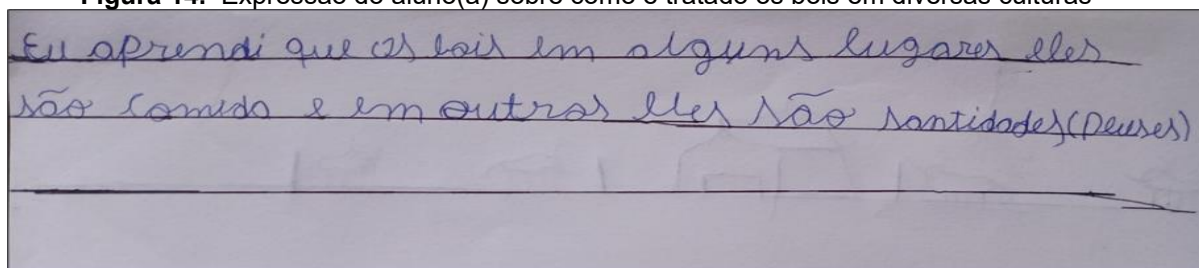 Figura 14: Expressão do aluno(a) sobre como é tratado os bois em diversas culturas
Eu aprendi que os bois em alguns lugares eles
são comida e em outras eles são santidades (Deuses)